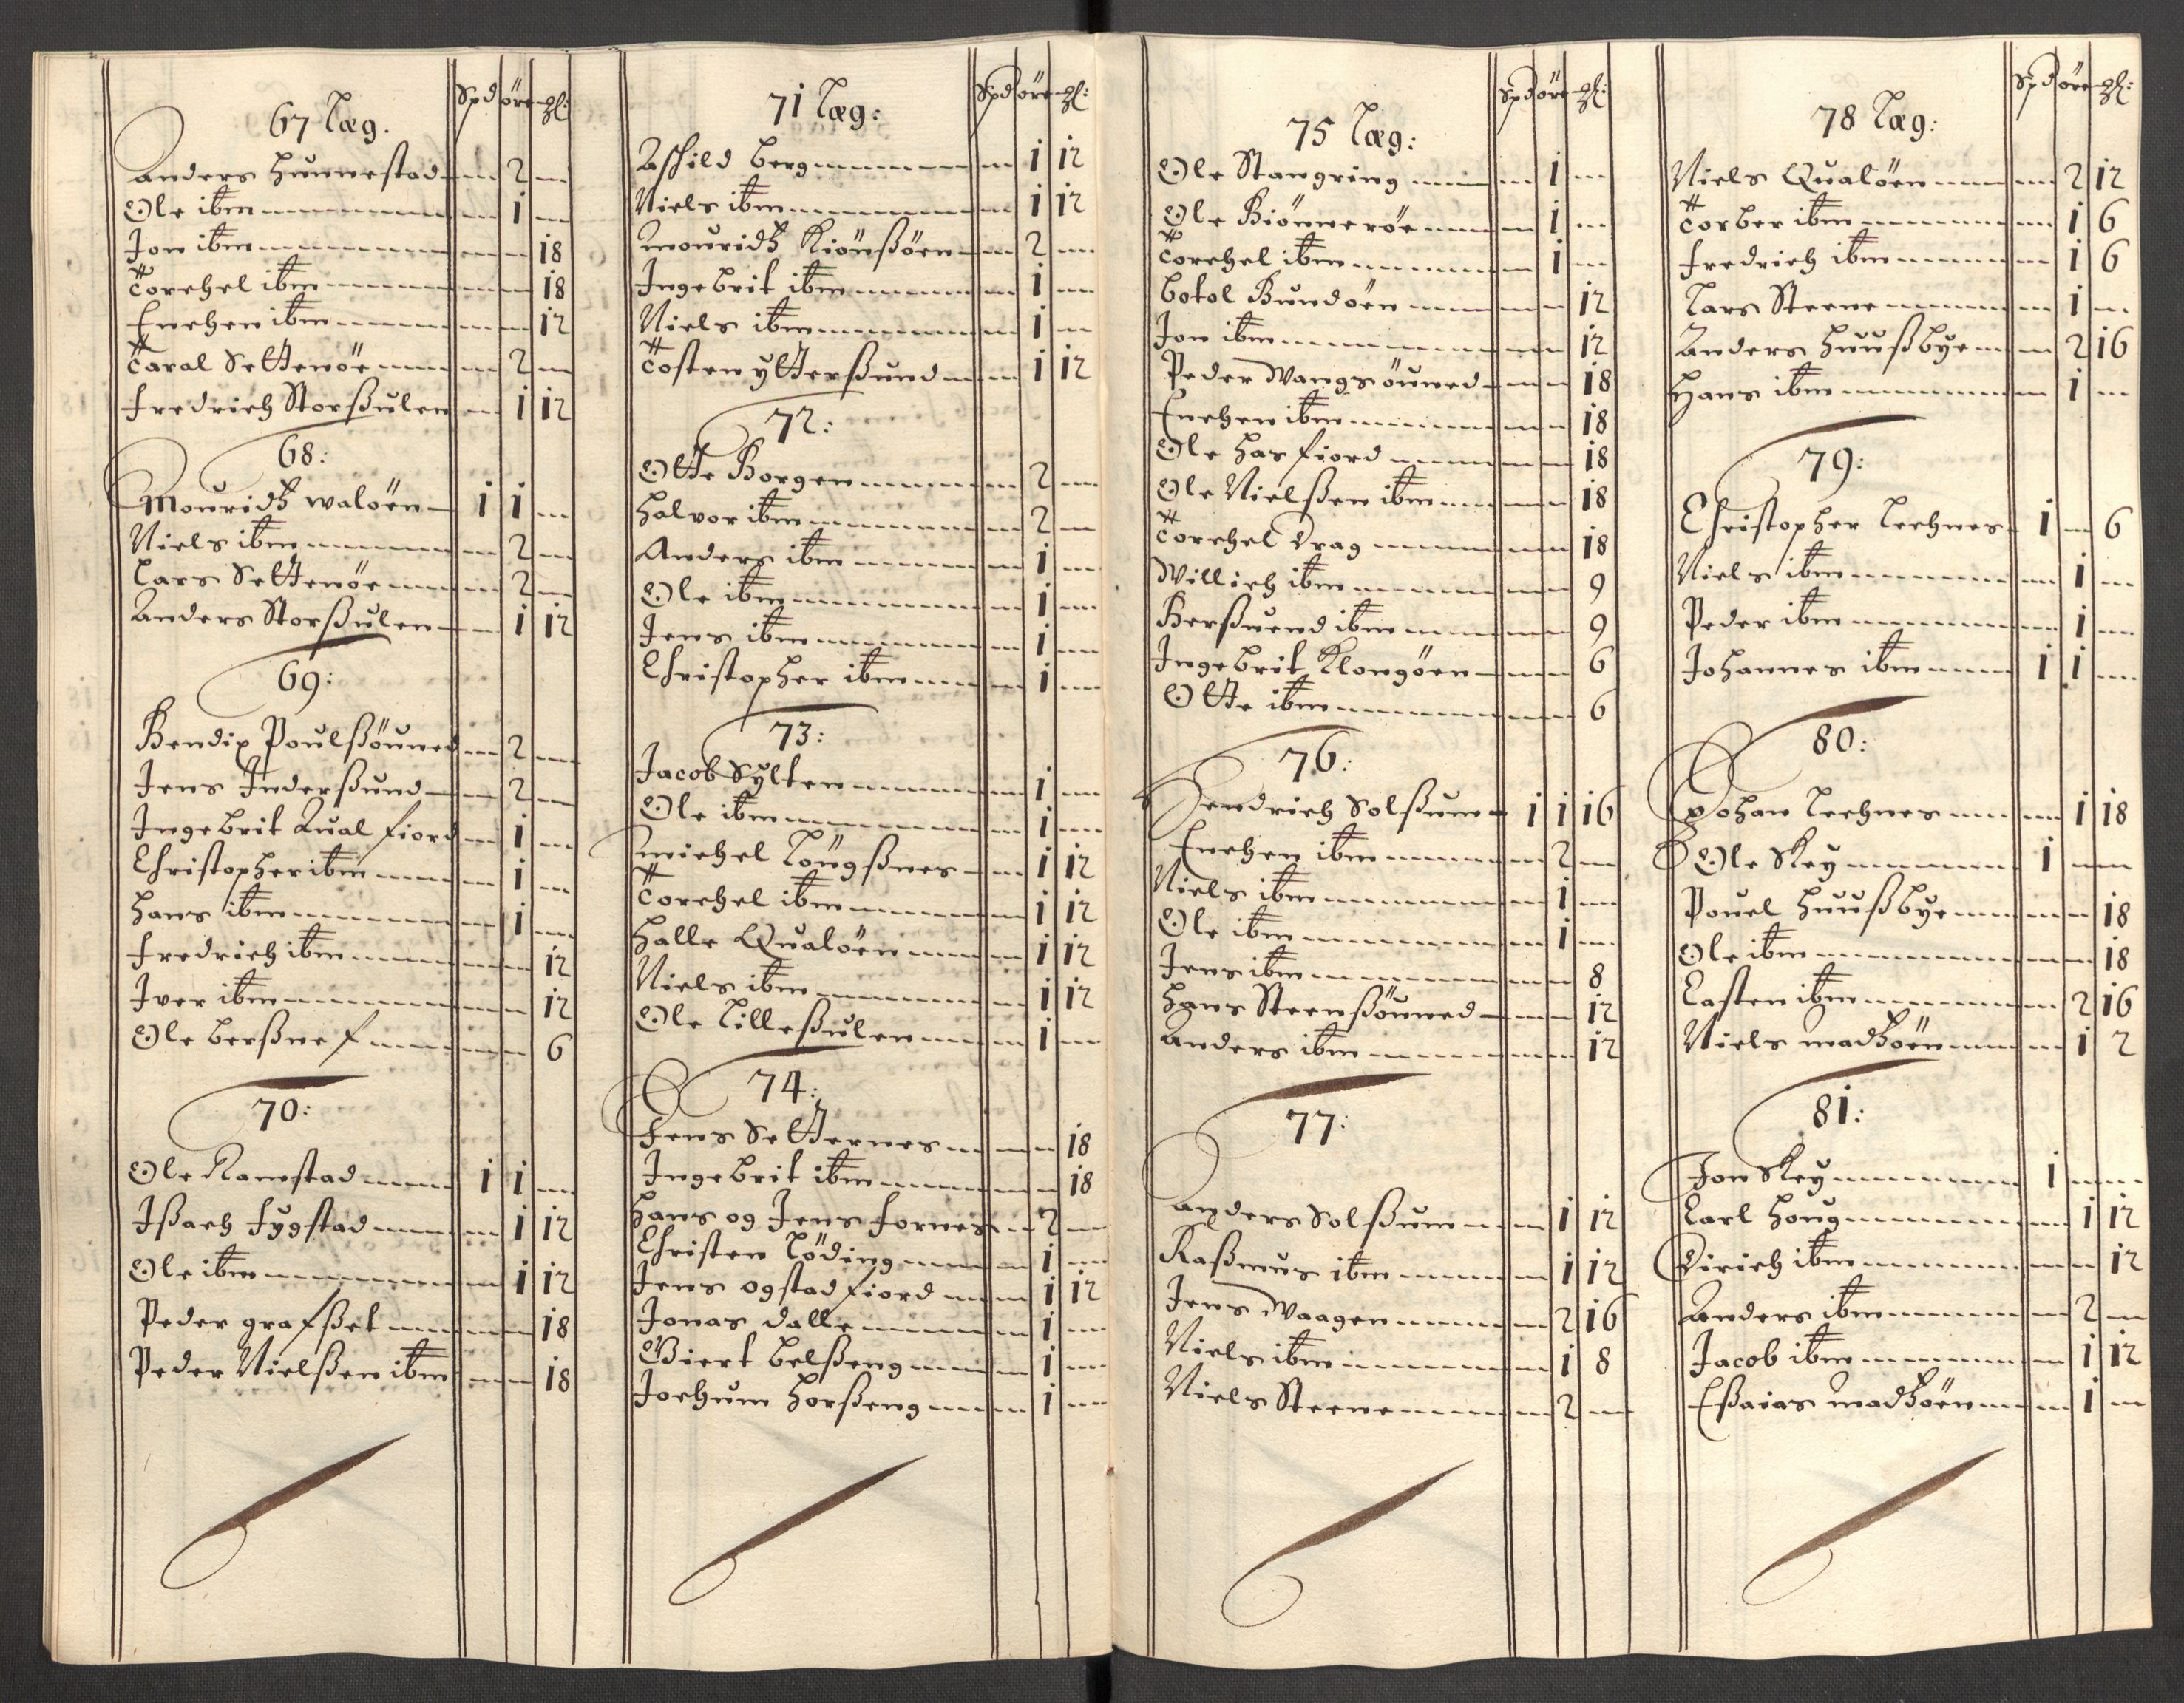 Spd öre ₰:
67 Læg.
Anders Hunnestad 2
Ole ibm 1
Jon ibm 18
Torchel ibm 18
Enchen ibm 12
Taral Settenöe 2
Fredrich Storßulen 1 12
68:
Mouridtz waløen 1 1
Niels ibm 2
Lars Settenöe 2
Anders Storßulen 1 12
69:
Bendix Poulßöuned 2
Jens Inderßund 2
Ingebrit Qualfiord 1
Christopher ibm 1
Hans ibm 1
Fredrich ibm 12
Iver ibm 12
Ole Berßnef 6
70:
Ole Ramstad 1 1
Ißach Fygstad 1 12
Ole ibm 1 12
Peder grafßet 18
Peder Nielßen ibm 18
Spd öre ₰:
71 Læg:
Aschild Berg 1 12
Niels ibm 1 12
Mouridtz Kiönßöen 2
Ingebrit ibm 1
Niels ibm 1
Tosten ytterßund 1 12
72:
Otte Borgen 2
Halvor ibm 2
Anders ibm 1
Ole ibm 1
Jens ibm 1
Christopher ibm 1
73:
Jacob Sylten 1
Ole ibm 1
Michel Löugßnes 1 12
Torchel ibm 1 12
Halle Qualöen 1 12
Niels ibm 1 12
Ole Lilleßulen 1
74:
Jens Setternes 18
Ingebrit ibm 18
Hans og Jens Fornes 2
Christen Löding 1
Jens ogstadfiord 1 12
Jonas dalle 1
Giert Belßeng 1
Jochum Horßeng 1
Spd öre ₰:
75 Læg:
Ole Stangring 1
Ole Biönneröe 1
Torchel ibm 1
Botol Bundöen 12
Jon ibm 12
Peder Wangsöuned 18
Enchen ibm 18
Ole Hasfiord 18
Ole Nielßen ibm 18
Torchel Drag 18
Willich ibm 9
Berßuend ibm 9
Ingebrit Klongöen 6
Otte ibm 6
76:
Hendrich Solßum 1 1 16
Enchen ibm 2
Niels ibm 1
Ole ibm 1
Jens ibm 8
Hans Steenßöuned 12
Anders ibm 12
77:
Anders Solßum 1 12
Raßmus ibm 1 12
Jens Waagen 2 16
Niels ibm 1 8
Niels Steene 2
Spd öre ₰:
78 Læg:
Niels Qualöen 2 12
Torber ibm 1 6
Fredrich ibm 1 6
Lars Steene 1
Anders Huußbye 2 16
Hans ibm 1
79:
Christopher Lechnes 1 6
Niels ibm 1
Peder ibm 1
Johannes ibm 1 1
80:
Johan Lechnes 1 18
Ole Skey 1
Pouel Huußbye 18
Ole ibm 18
Casten ibm 2 16
Niels Madtzöen 1 2
81:
Jon Skey 1
Carl Houg 1 12
Dirich ibm 12
Anders ibm 2
Jacob ibm 1 12
Eßaias Madtzöen 1